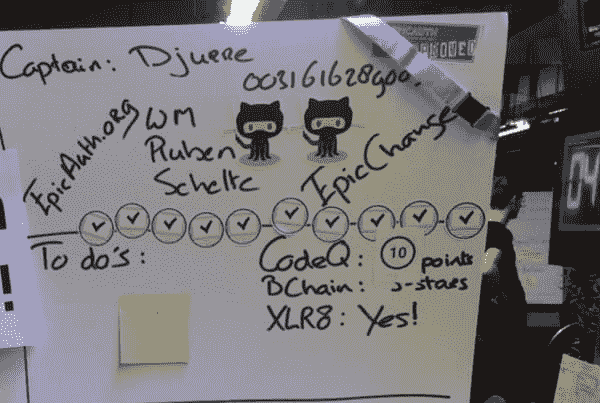 Captain: Djuere
EpicAuth.org
WM
Ruben
Schelte
EpicChange
To do's:
CodeQ: 10 points
BChain: -stars
XLR8: Yes!
04